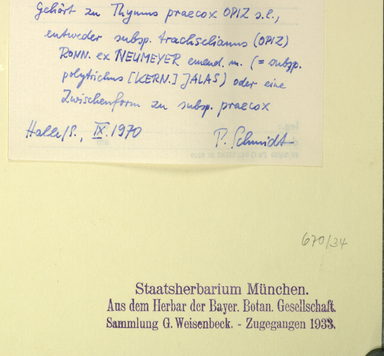 Gehört zu Thymus praecox OPIZ s.l.,
entweder subsp. trachselianus (OPIZ)
RONN. ex NEUMEYER emend. m. (= subsp.
polytrichus [KERN.] JALAS) oder eine
Zwischenform zu subsp. praecox
Halle/S., IX. 1970 P. Schmidt
670/34
Staatsherbarium München.
Aus dem Herbar der Bayer. Botan. Gesellschaft.
Sammlung G. Weisenbeck. - Zugegangen 1933.